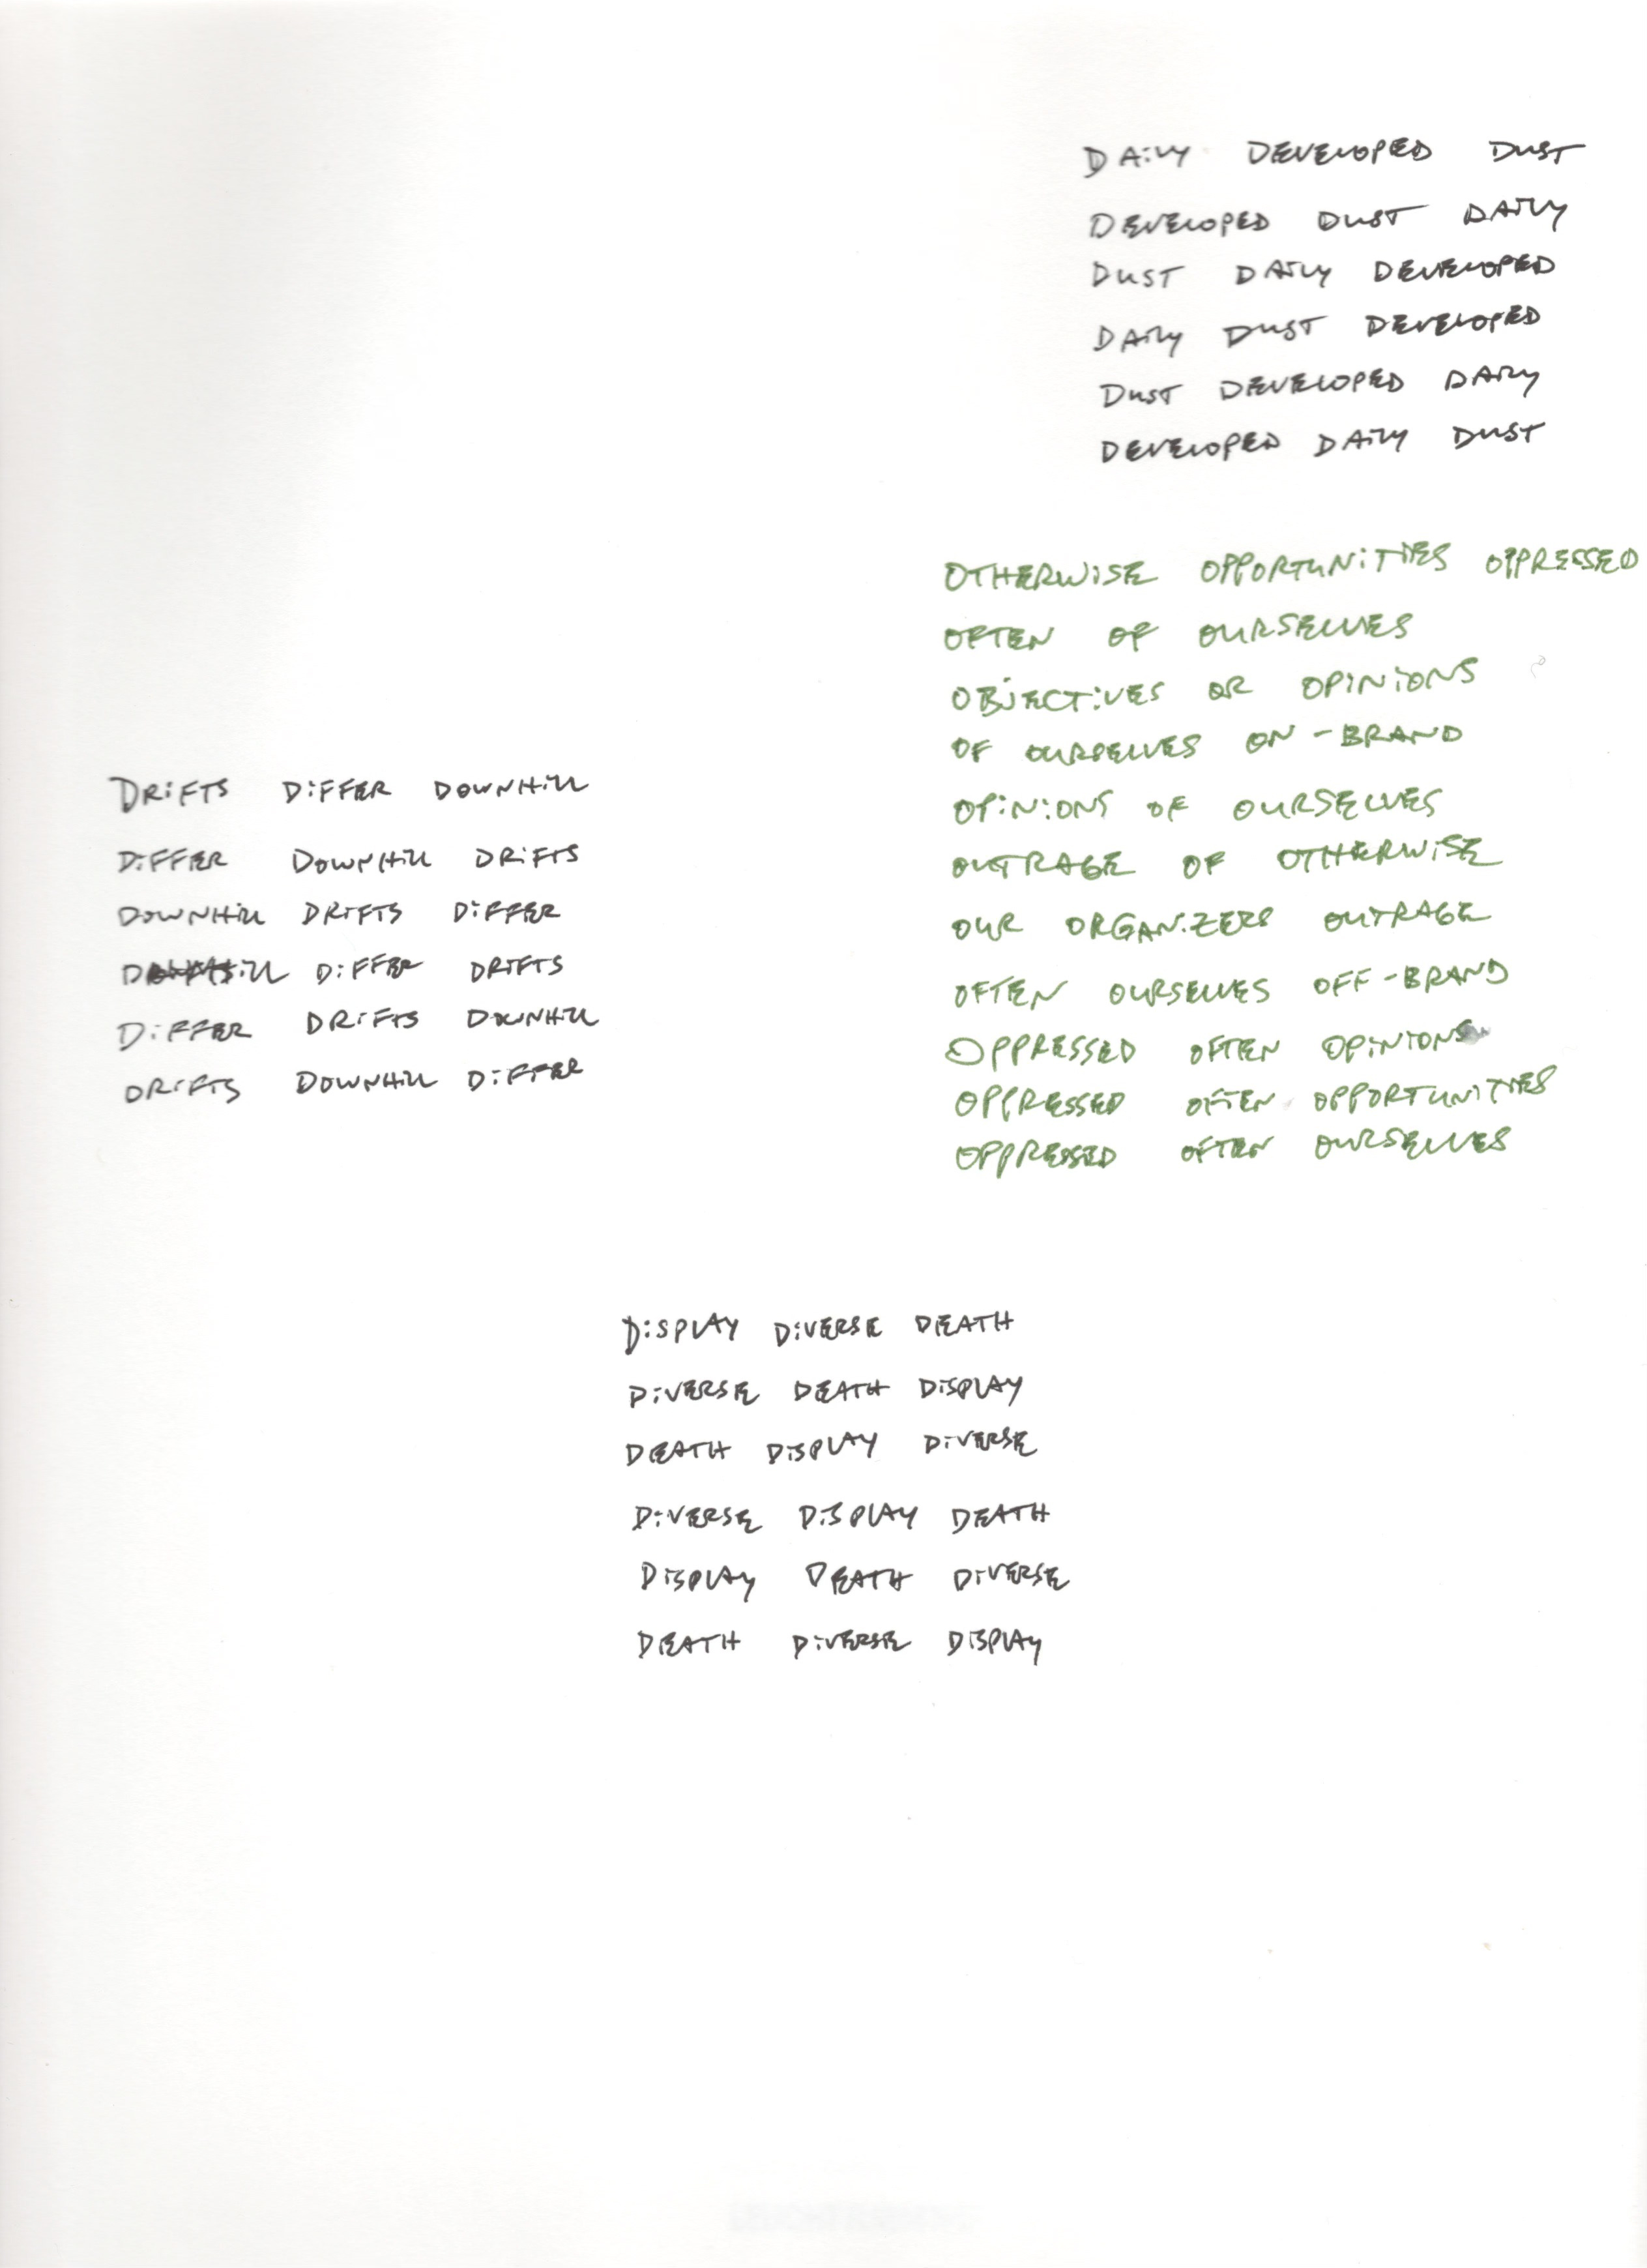 DAILY DEVELOPED DUST
DEVELOPED DUST DAILY
DUST DAILY DEVELOPED
DAILY DUST DEVELOPED
DUST DEVELOPED DAILY
DEVELOPED DAILY DUST
OTHERWISE OPPORTUNITIES OPPRESSED
OFTEN OF OURSELVES
OBJECTIVES OR OPINIONS
OF OURSELVES ON-BRAND
OPINIONS OF OURSELVES
OUTRAGE OF OTHERWISE
OUR ORGANIZERS OUTRAGE
OFTEN OURSELVES OFF-BRAND
OPPRESSED OFTEN OPINIONS
OPPRESSED OFTEN OPPORTUNITIES
OPPRESSED OFTEN OURSELVES
DRIFTS DIFFER DOWNHILL
DIFFER DOWNHILL DRIFTS
DOWNHILL DRIFTS DIFFER
DOWNHILL DIFFER DRIFTS
DIFFER DRIFTS DOWNHILL
DRIFTS DOWNHILL DIFFER
DISPLAY DIVERSE DEATH
DIVERSE DEATH DISPLAY
DEATH DISPLAY DIVERSE
DIVERSE DISPLAY DEATH
DISPLAY DEATH DIVERSE
DEATH DIVERSE DISPLAY